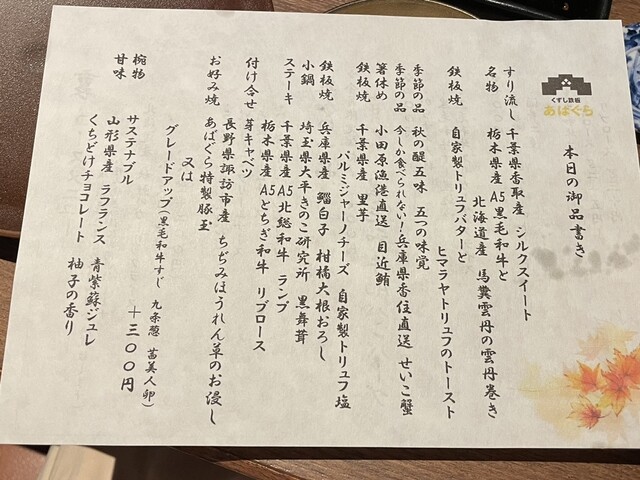 くずし鉄板
あばぐら
本日の御品書き
すり流し 千葉県香取産 シルクスイート
名物 栃木県産 A5黒毛和牛と
北海道産 馬糞雲丹の雲丹巻き
鉄板焼 自家製トリュフバターと
ヒマラヤトリュフのトースト
季節の品 秋の醍五味 五つの味覚
季節の品 今しか食べられない!兵庫県香住直送 せいこ蟹
箸休め 小田原漁港直送 目近鮪
鉄板焼 千葉県産 里芋
パルミジャーノチーズ 自家製トリュフ塩
鉄板焼 兵庫県産 鱈白子 柑橘大根おろし
小鍋 埼玉県大平きのこ研究所 黒舞茸
ステーキ 千葉県産A5北総和牛 ランプ
栃木県産A5とちぎ和牛 リブロース
付け合せ 芽キャベツ
長野県諏訪市産 ちぢみほうれん草のお浸し
お好み焼 あばぐら特製豚玉
又は
グレードアップ(黒毛和牛すじ 九条葱 茜美人卵)
+三〇〇円
椀物 サステナブル
甘味 山形県産 ラフランス 青紫蘇ジュレ
くちどけチョコレート 柚子の香り